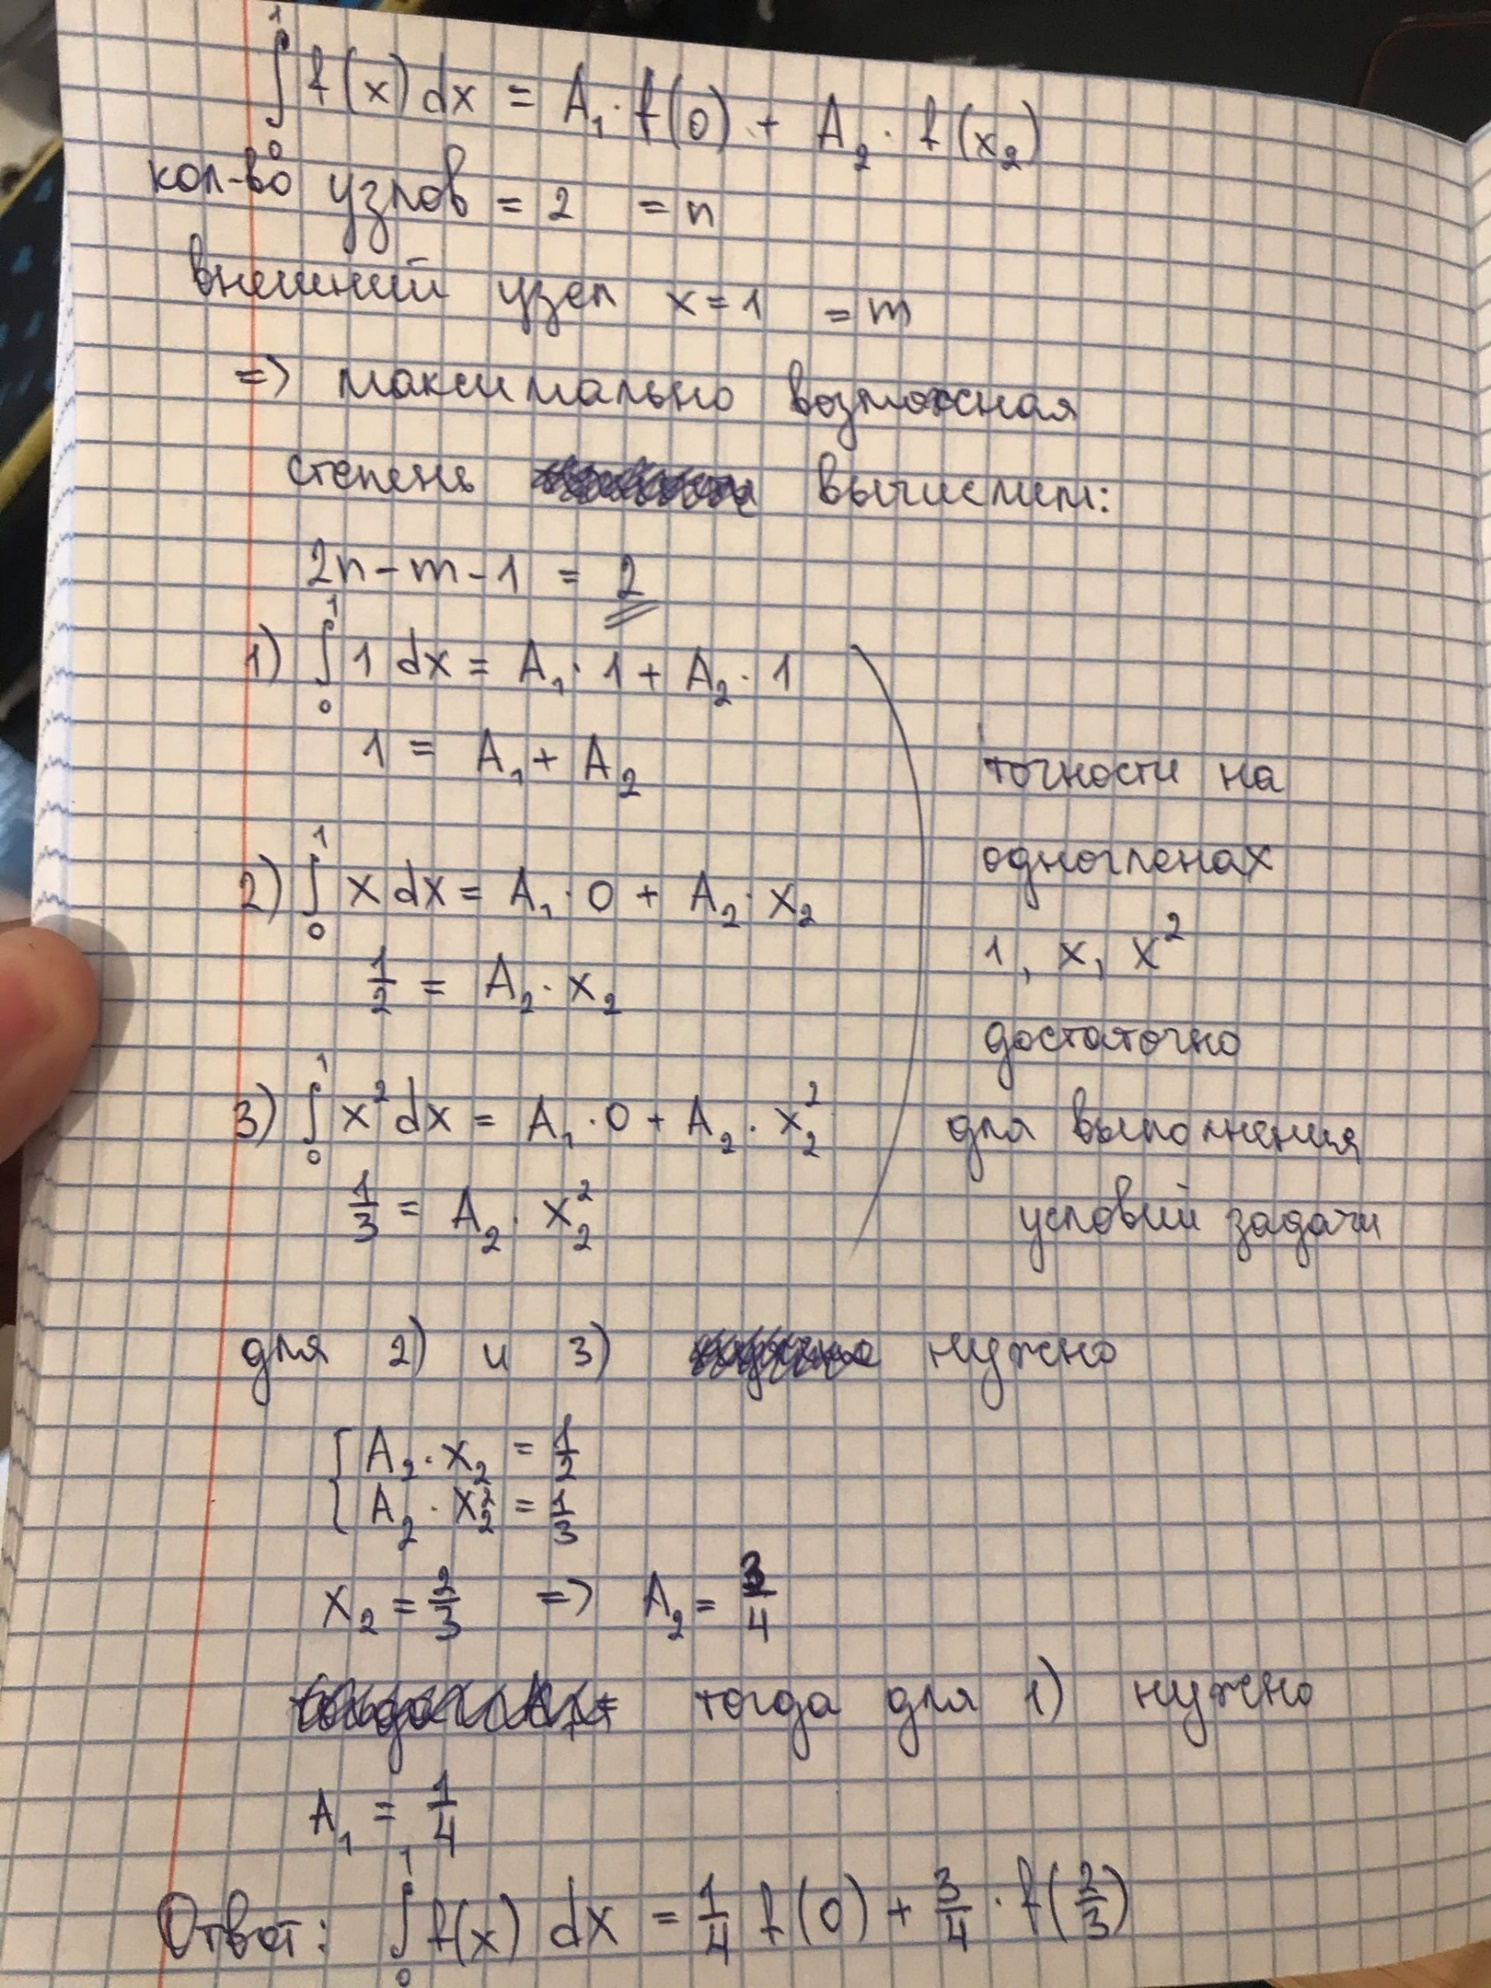 ∫₀¹ f(x) dx = A₁ · f(0) + A₂ · f(x₂)
кол-во узлов = 2 = n
внешний узел x = 1 = m
=> максимально возможная
степень вычислим:
2n - m - 1 = 2
1) ∫₀¹ 1 dx = A₁ · 1 + A₂ · 1
1 = A₁ + A₂
2) ∫₀¹ x dx = A₁ · 0 + A₂ · x₂
1/2 = A₂ · x₂
3) ∫₀¹ x² dx = A₁ · 0 + A₂ · x₂²
1/3 = A₂ · x₂²
точности на
одночленах
1, x, x²
достаточно
для выполнения
условий задачи
для 2) и 3) нужно
{ A₂ · x₂ = 1/2
{ A₂ · x₂² = 1/3
x₂ = 2/3 => A₂ = 3/4
тогда для 1) нужно
A₁ = 1/4
Ответ: ∫₀¹ f(x) dx = 1/4 f(0) + 3/4 · f(2/3)